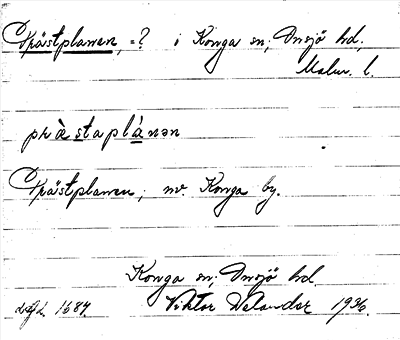 Prästplanen, =? i Konga sn; Onsjö hd,
Malm. l.
præ̀staplánən
Prästplanen; nv. Konga by.
Konga sn; Onsjö hd
1687. Viktor Welander 1936.